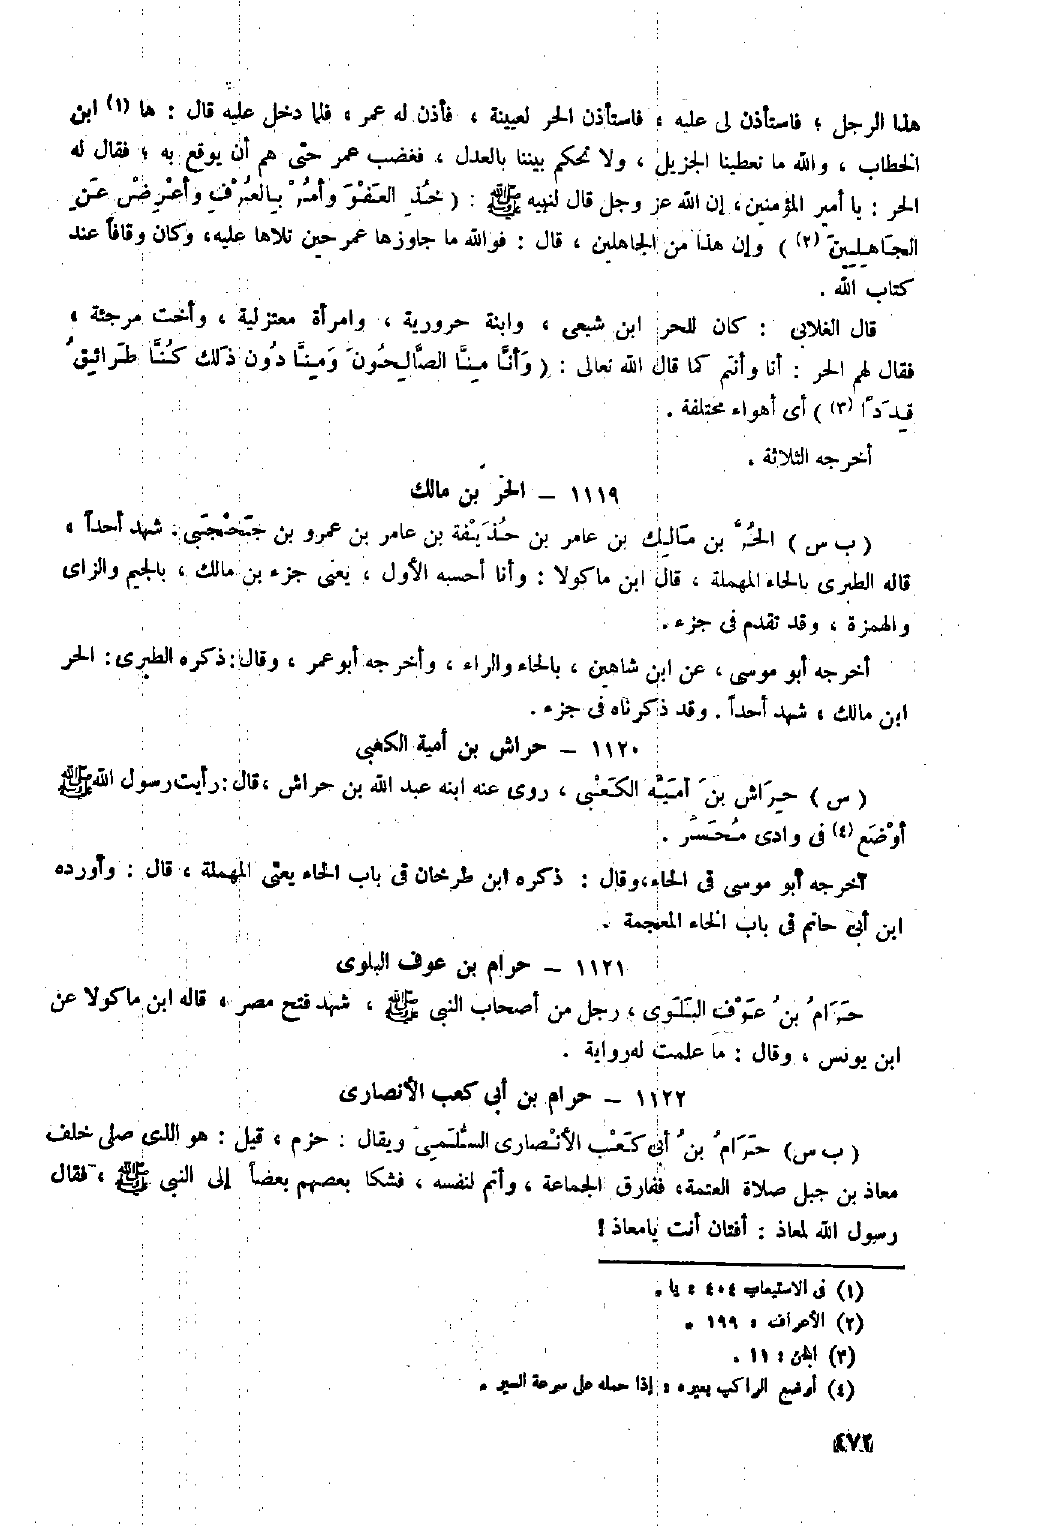 هذا الرجل ؛ فاستأذن لى عليه ، فاستأذن الحر لعيينة ، فأذن له عمر ، فلما دخل عليه قال : ها (١) ابن
الخطاب ، والله ما تعطينا الجزيل ، ولا تحكم بيننا بالعدل ، فغضب عمر حتى هم أن يوقع به ؛ فقال له
الحر : يا أمير المؤمنين، إن الله عز وجل قال لنبيه ﷺ : ( خُذِ العَفْوَ وَأمُرْ بِالعُرْفِ وأعْرِضْ عَنِ
الجَاهِلِينَ (٢) ) وإن هذا من الجاهلين ، قال : فوالله ما جاوزها عمر حين تلاها عليه، وكان وقافاً عند
كتاب الله .
قال الغلابى : كان للحر ابن شيعى ، وابنة حرورية ، وامرأة معتزلية ، وأخت مرجئة ،
فقال لهم الحر : أنا وأنتم كما قال الله تعالى : ( وَأنَّا مِنَّا الصَّالِحُونَ وَمِنَّا دُون ذلك كُنَّا طَرائِقَ
قِدَدًا (٣) ) أى أهواء مختلفة .
أخرجه الثلاثة .
١١١٩ – الحرّ بن مالك
( ب س ) الحُرُّ بن مَالِك بن عامر بن حُذَيْفة بن عامر بن عمرو بن جَحْجَبَى . شهد أحداً ،
قاله الطبرى بالحاء المهملة ، قال ابن ماكولا : وأنا أحسبه الأول ، يعنى جزء بن مالك ، بالجيم والزاى
والهمزة ، وقد تقدم فى جزء .
أخرجه أبو موسى ، عن ابن شاهين ، بالحاء والراء ، وأخرجه أبو عمر ، وقال : ذكره الطبرى : الحر
ابن مالك ، شهد أحداً . وقد ذكرناه فى جزء .
١١٢٠ – حراش بن أمية الكعبى
( س ) حِرَاش بنَ أمَيَّة الكَعْبى ، روى عنه ابنه عبد الله بن حراش ، قال : رأيت رسول الله ﷺ
أوْضَع (٤) فى وادى مُحَسِّر .
أخرجه أبو موسى فى الحاء، وقال : ذكره ابن طرخان فى باب الحاء يعنى المهملة ، قال : وأورده
ابن أبى حاتم فى باب الخاء المعجمة .
١١٢١ – حرام بن عوف البلوى
حَرَامُ بنُ عَوْف البَلَوى ، رجل من أصحاب النبى ﷺ ، شهد فتح مصر ، قاله ابن ماكولا عن
ابن يونس ، وقال : ما علمت له رواية .
١١٢٢ – حرام بن أبي كعب الأنصارى
( ب س ) حَرَامُ بنُ أبى كَعْب الأنْصارى السُّلَمِى ويقال : حزم ، قيل : هو الذى صلى خلف
معاذ بن جبل صلاة العتمة، ففارق الجماعة ، وأتم لنفسه ، فشكا بعضهم بعضاً إلى النبى ﷺ ، فقال
رسول الله لمعاذ : أفتان أنت يا معاذ !
(١) فى الاستيعاب ٤٠٤ : يا .
(٢) الأعراف : ١٩٩ .
(٣) الجن : ١١ .
(٤) أوضع الراكب بعيره : إذا حمله على سرعة السير .
٤٧٢